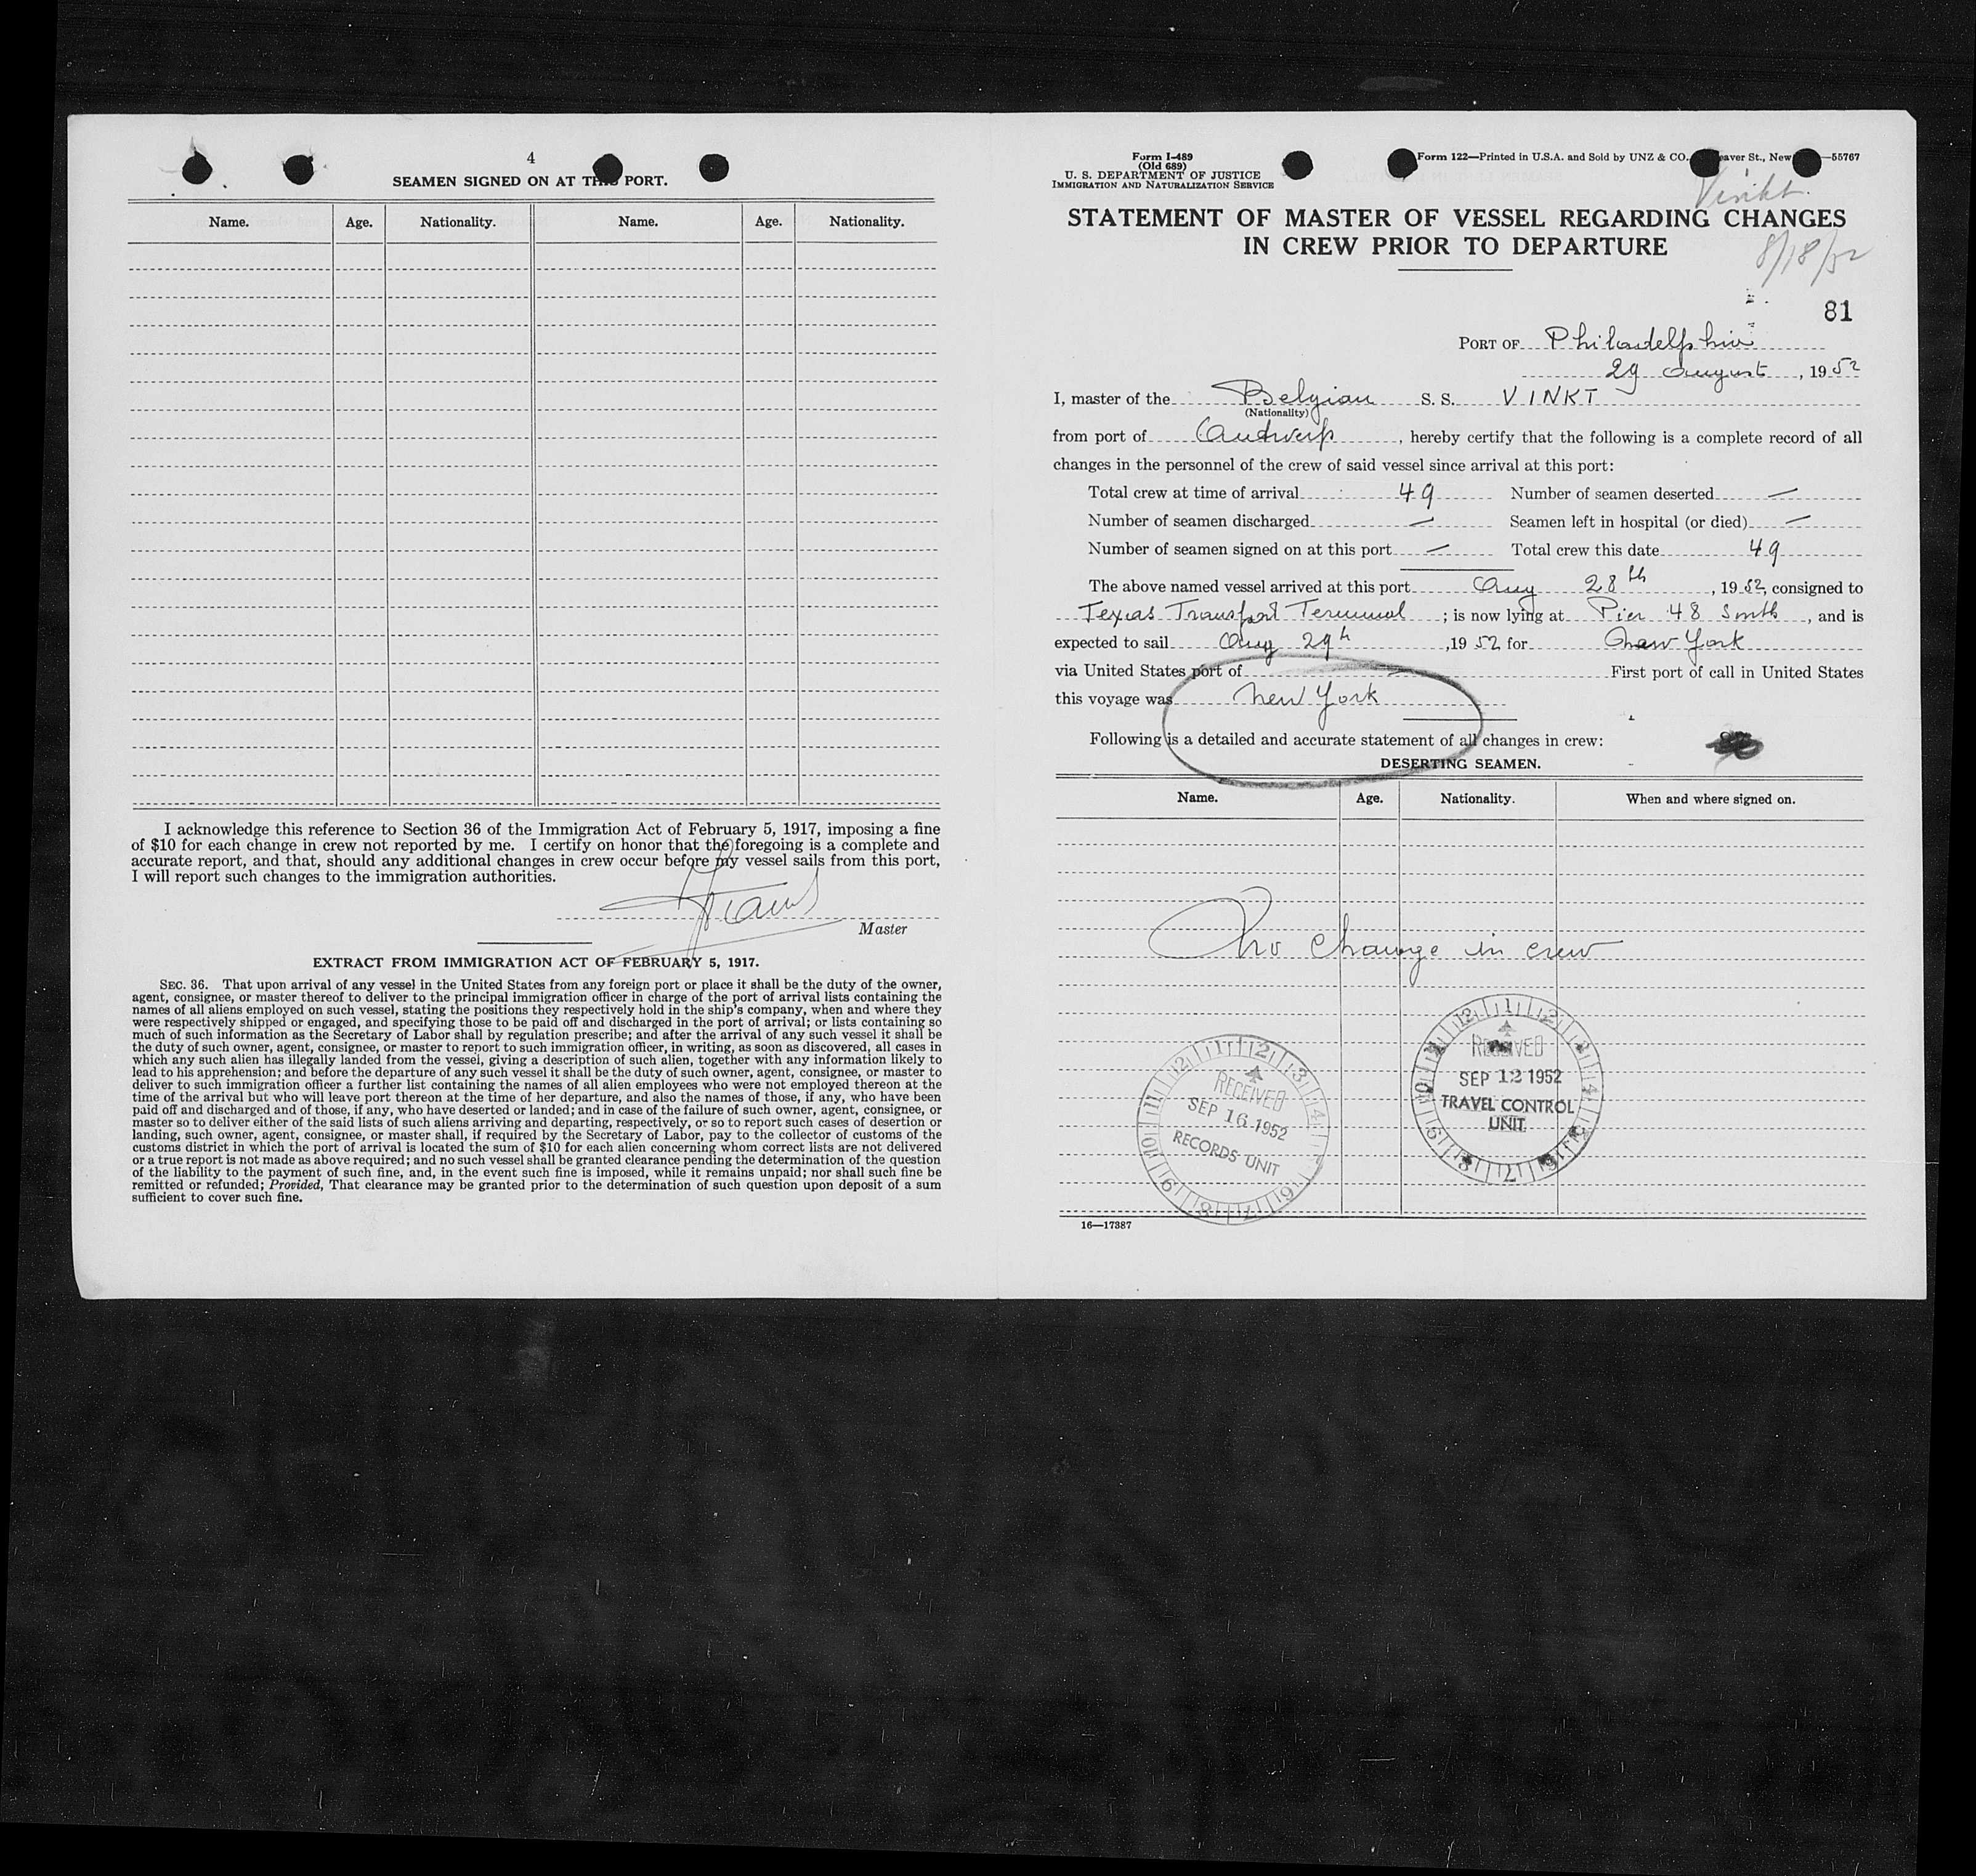 4
SEAMEN SIGNED ON AT THIS PORT.
Name. Age. Nationality. Name. Age. Nationality.
I acknowledge this reference to Section 36 of the Immigration Act of February 5, 1917, imposing a fine
of $10 for each change in crew not reported by me. I certify on honor that the foregoing is a complete and
accurate report, and that, should any additional changes in crew occur before my vessel sails from this port,
I will report such changes to the immigration authorities.
Master
EXTRACT FROM IMMIGRATION ACT OF FEBRUARY 5, 1917.
SEC. 36. That upon arrival of any vessel in the United States from any foreign port or place it shall be the duty of the owner,
agent, consignee, or master thereof to deliver to the principal immigration officer in charge of the port of arrival lists containing the
names of all aliens employed on such vessel, stating the positions they respectively hold in the ship's company, when and where they
were respectively shipped or engaged, and specifying those to be paid off and discharged in the port of arrival; or lists containing so
much of such information as the Secretary of Labor shall by regulation prescribe; and after the arrival of any such vessel it shall be
the duty of such owner, agent, consignee, or master to report to such immigration officer, in writing, as soon as discovered, all cases in
which any such alien has illegally landed from the vessel, giving a description of such alien, together with any information likely to
lead to his apprehension; and before the departure of any such vessel it shall be the duty of such owner, agent, consignee, or master to
deliver to such immigration officer a further list containing the names of all alien employees who were not employed thereon at the
time of the arrival but who will leave port thereon at the time of her departure, and also the names of those, if any, who have been
paid off and discharged and of those, if any, who have deserted or landed; and in case of the failure of such owner, agent, consignee, or
master so to deliver either of the said lists of such aliens arriving and departing, respectively, or so to report such cases of desertion or
landing, such owner, agent, consignee, or master shall, if required by the Secretary of Labor, pay to the collector of customs of the
customs district in which the port of arrival is located the sum of $10 for each alien concerning whom correct lists are not delivered
or a true report is not made as above required; and no such vessel shall be granted clearance pending the determination of the question
of the liability to the payment of such fine, and, in the event such fine is imposed, while it remains unpaid; nor shall such fine be
remitted or refunded; Provided, That clearance may be granted prior to the determination of such question upon deposit of a sum
sufficient to cover such fine.
Form I-489
(Old 689)
U. S. DEPARTMENT OF JUSTICE
IMMIGRATION AND NATURALIZATION SERVICE
Form 122—Printed in U.S.A. and Sold by UNZ & CO. eaver St., New —55767
Vinkt.
STATEMENT OF MASTER OF VESSEL REGARDING CHANGES
IN CREW PRIOR TO DEPARTURE
8/18/52
81
PORT OF Philadelphia
29 August, 1952
I, master of the Belgian S. S. VINKT
(Nationality)
from port of Antwerp, hereby certify that the following is a complete record of all
changes in the personnel of the crew of said vessel since arrival at this port:
Total crew at time of arrival 49 Number of seamen deserted —
Number of seamen discharged — Seamen left in hospital (or died) —
Number of seamen signed on at this port — Total crew this date 49
The above named vessel arrived at this port Aug 28th, 1952, consigned to
Texas Transport Terminal; is now lying at Pier 48 South, and is
expected to sail Aug 29th, 1952 for New York
via United States port of First port of call in United States
this voyage was New York
Following is a detailed and accurate statement of all changes in crew:
DESERTING SEAMEN.
Name. Age. Nationality. When and where signed on.
No change in crew
RECEIVED
SEP 16 1952
RECORDS UNIT
RECEIVED
SEP 12 1952
TRAVEL CONTROL
UNIT
16—17387